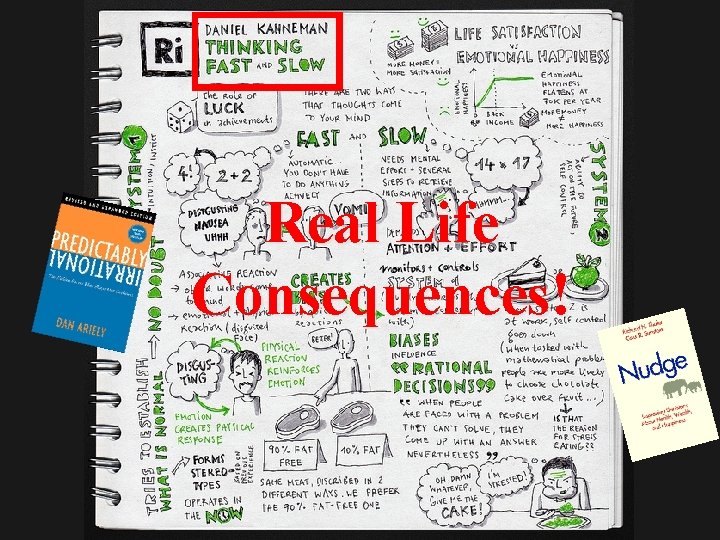 Ri
DANIEL KAHNEMAN
THINKING
FAST AND SLOW
THE ROLE OF
LUCK
in achievements
THERE ARE TWO WAYS
THAT THOUGHTS COME
TO YOUR MIND
LIFE SATISFACTION
VS
EMOTIONAL HAPPINESS
MORE MONEY:
MORE SATISFACTION
EMOTIONAL
HAPPINESS
EMOTIONAL
HAPPINESS
FLATTENS AT
70K PER YEAR
MORE MONEY
≠
MORE HAPPINESS
INCOME
FAST AND SLOW
SYSTEM 1
INTUITION, INSTINCT
4!
2+2
AUTOMATIC
YOU DON'T HAVE
TO DO ANYTHING
ACTIVELY
NEEDS MENTAL
EFFORT + SEVERAL
STEPS TO RETRIEVE
INFORMATION
14 × 17
HMMM..
SYSTEM 2
ABILITY OF
SELF CONTROL
DISGUSTING
NAUSEA
UHHH
VOMIT
Real Life
Consequences!
ATTENTION + EFFORT
monitors + controls
SYSTEM 1
REVISED AND EXPANDED EDITION
PREDICTABLY
IRRATIONAL
DAN ARIELY
NO DOUBT
ASSOCIATIVE REACTION
CREATES
reactions
Reaction (disgusted
face)
PHYSICAL
REACTION
REINFORCES
EMOTION
DISGUS-
TING
EMOTION
CREATES PHYSICAL
RESPONSE
BIASES
INFLUENCE
RATIONAL
DECISIONS
WHEN PEOPLE
ARE FACED WITH A PROBLEM
THEY CAN'T SOLVE, THEY
COME UP WITH AN ANSWER
NEVERTHELESS
at work, self control
goes down
(When tasked with
mathematical problem
people are more likely
to choose chocolate
cake over fruit...)
IS THAT
THE REASON
FOR STRESS
EATING??
Richard H. Thaler
Cass R. Sunstein
Nudge
Improving Decisions
About Health, Wealth,
and Happiness
TRIES TO ESTABLISH
WHAT IS NORMAL
FORMS
STEREO-
TYPES
BASED ON
OPERATES IN
THE NOW
90% FAT
FREE
10% FAT
SAME MEAT, DESCRIBED IN 2
DIFFERENT WAYS. WE PREFER
THE 90% FAT-FREE ONE
OH DAMN
WHATEVER,
GIVE ME THE
CAKE!
I'M
STRESSED!